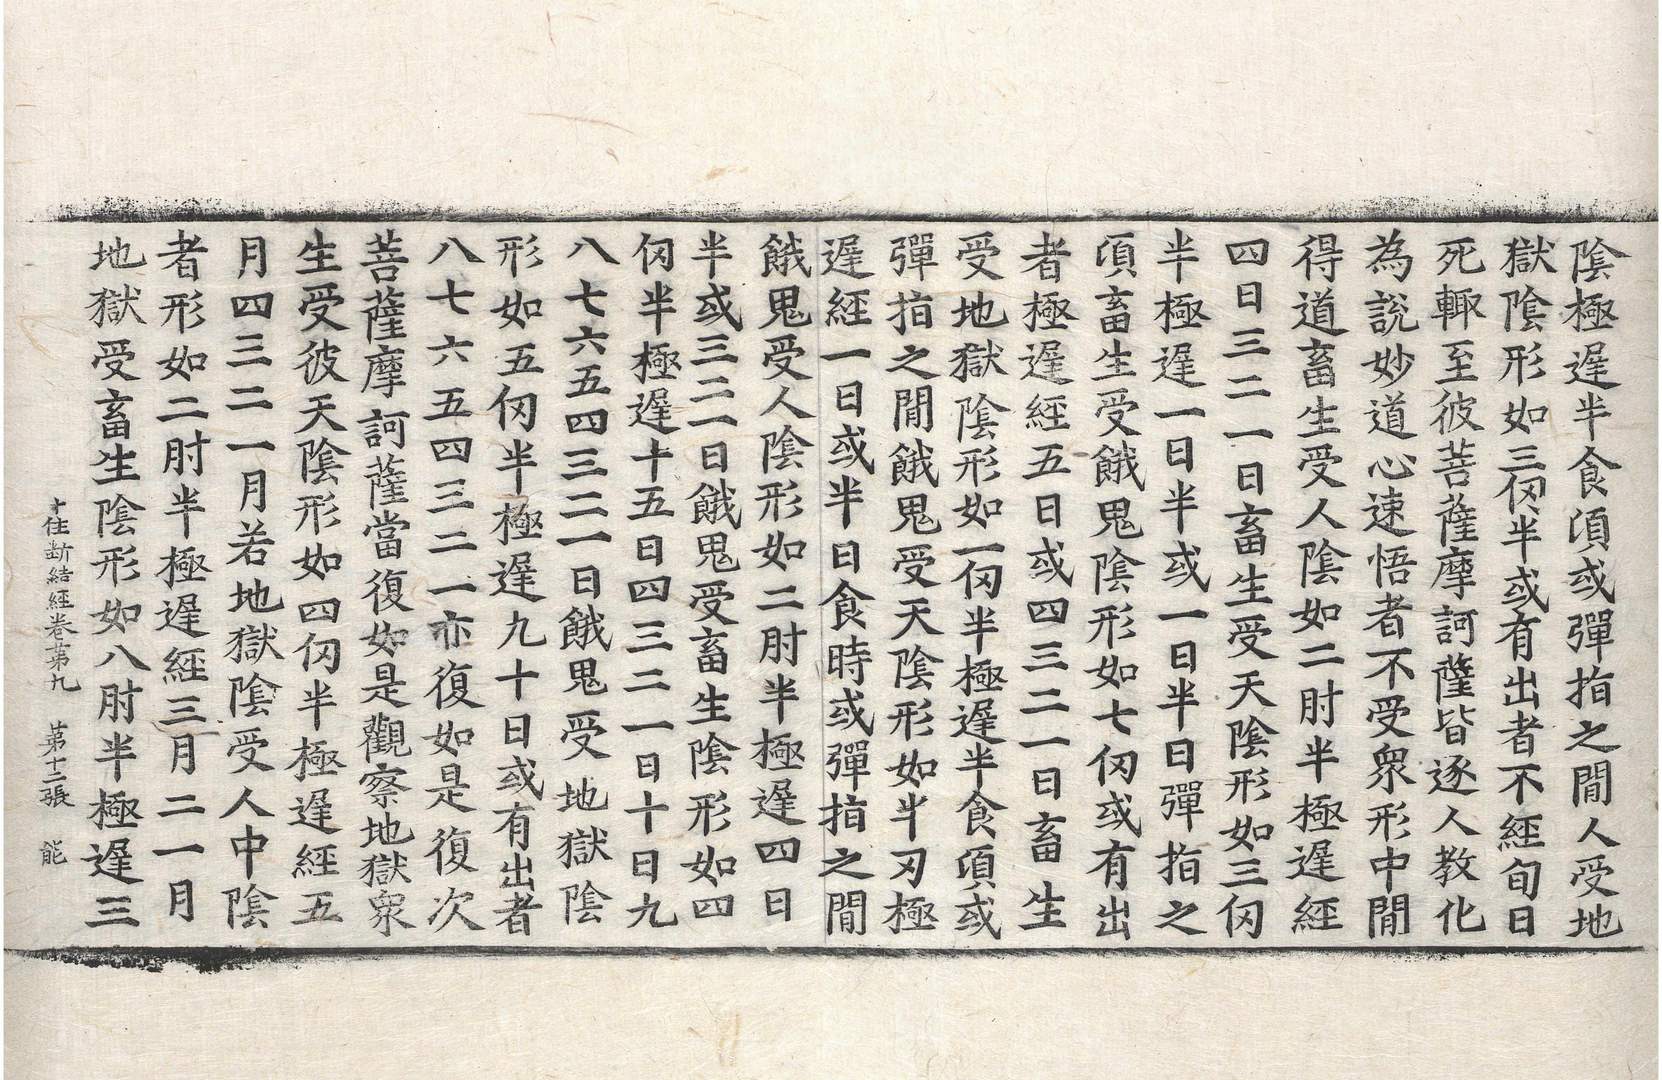 陰極遲半食湏或彈指之間人受地
獄陰形如三仞半或有出者不經旬日
死輙至彼菩薩摩訶薩皆逐人教化
為說妙道心速悟者不受衆形中間
得道畜生受人陰如二肘半極遲經
四日三二一日畜生受天陰形如三仞
半極遲一日半或一日半日彈指之
湏畜生受餓鬼陰形如七仞或有出
者極遲經五日或四三二一日畜生
受地獄陰形如一仞半極遲半食湏或
彈指之間餓鬼受天陰形如半刃極
遲經一日或半日食時或彈指之間
餓鬼受人陰形如二肘半極遲四日
半或三二一日餓鬼受畜生陰形如四
仞半極遲十五日四三二一日十日九
八七六五四三二一日餓鬼受地獄陰
形如五仞半極遲九十日或有出者
八七六五四三二一亦復如是復次
菩薩摩訶薩當復如是觀察地獄衆
生受彼天陰形如四仞半極遲經五
月四三二一月若地獄陰受人中陰
者形如二肘半極遲經三月二一月
地獄受畜生陰形如八肘半極遲三
十住斷結經卷第九　第十二張　能